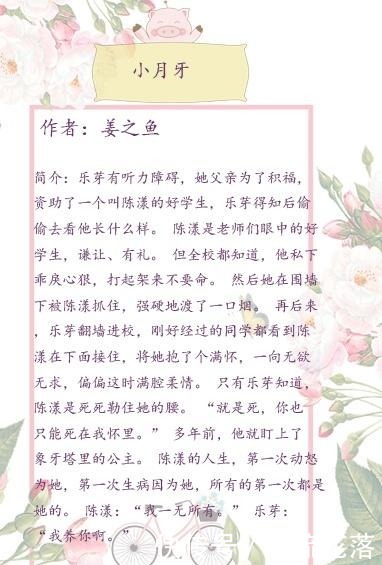 小月牙
作者：姜之鱼
简介：乐芽有听力障碍，她父亲为了积福，
资助了一个叫陈漾的好学生，乐芽得知后偷
偷去看他长什么样。 陈漾是老师们眼中的好
学生，谦让、有礼。 但全校都知道，他私下
乖戾心狠，打起架来不要命。 然后她在围墙
下被陈漾抓住，强硬地渡了一口烟。 再后来
，乐芽翻墙进校，刚好经过的同学都看到陈
漾在下面接住，将她抱了个满怀，一向无欲
无求，偏偏这时满腔柔情。 只有乐芽知道，
陈漾是死死勒住她的腰。 “就是死，你也
只能死在我怀里。” 多年前，他就盯上了
象牙塔里的公主。 陈漾的人生，第一次动怒
为她，第一次生病因为她，所有的第一次都是
她的。 陈漾：“我一无所有。” 乐芽：
“我养你啊。”